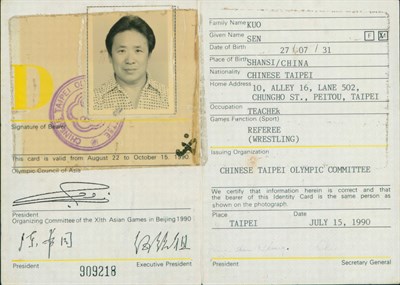 D
Signature of Bearer
This card is valid from August 22 to October 15. 1990
Olympic Council of Asia
President
Organizing Committee of the XIth Asian Games in Beijing 1990
President
Executive President
909218
Family Name KUO
Given Name SEN
F M
Date of Birth 27 07 / 31
Place of Birth SHANSI/CHINA
Nationality CHINESE TAIPEI
Home Address
10, ALLEY 16, LANE 502,
CHUNGHO ST., PEITOU, TAIPEI
Occupation TEACHER
Games Function (Sport)
REFEREE
(WRESTLING)
Issuing Organization
CHINESE TAIPEI OLYMPIC COMMITTEE
We certify that information herein is correct and that
the bearer of this Identity Card is the same person as
shown on the photograph.
Place Date
TAIPEI JULY 15, 1990
President Secretary General